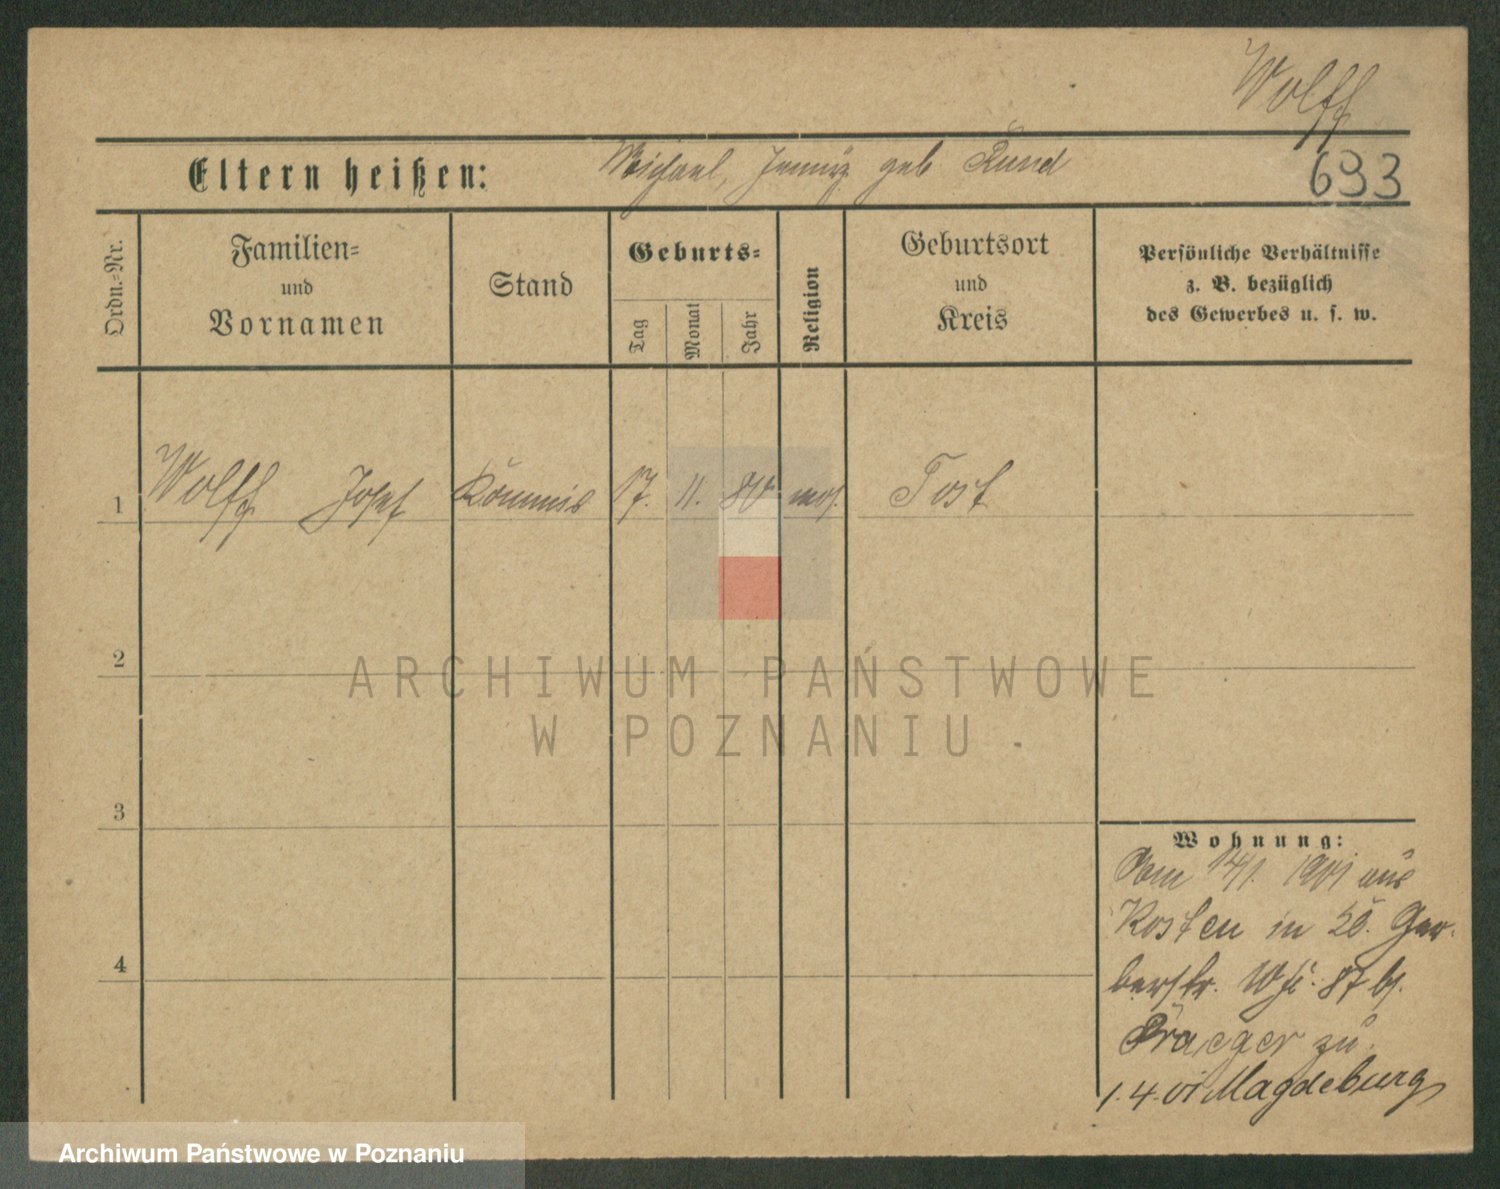 Wolff
Eltern heißen: Michael, geb.
693
Ordn.-Nr.
Familien-
und
Vornamen
Stand
Geburts-
Tag
Monat
Jahr
Religion
Geburtsort
und
Kreis
Persönliche Verhältnisse
z. B. bezüglich
des Gewerbes u. s. w.
1 Wolff Josef Kommis 17. 11. 80 mos. Tost
2
3
4
ARCHIWUM PAŃSTWOWE
W POZNANIU
Wohnung:
1901 aus
Kosten in Ger-
berstr. 87 bei
Praeger zu.
1.4.01 Magdeburg
Archiwum Państwowe w Poznaniu